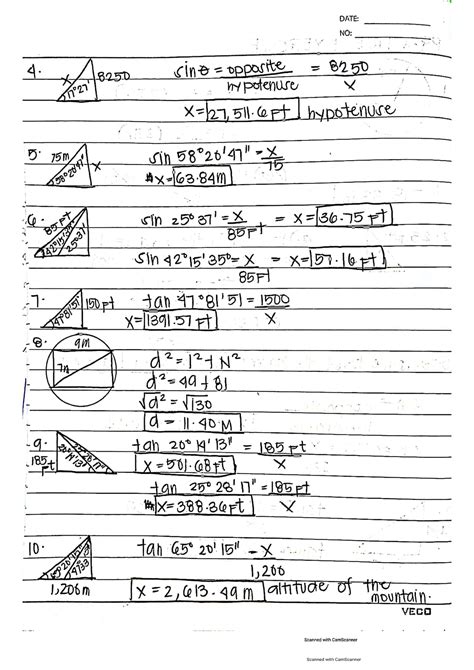 DATE:
NO:
4. x 8250 17°27' sinθ = opposite / hypotenuse = 8250 / x
x = 27,511.6 ft hypotenuse
5. 75m 58°20'47" x sin 58°20'47" = x / 75
x = 63.84m
6. 85 ft 42°15'35" 25°37' sin 25°37' = x / 85 ft = x = 36.75 ft
sin 42°15'35" = x / 85 ft = x = 57.16 ft
7. 150 ft 47°81'51 tan 47°81'51 = 1500 / x
x = 1391.57 ft
8. 9m 7m d² = l² + W²
d² = 49 + 81
√d² = √130
d = 11.40 M
9. 185 ft 20°14'13" 25°28'17" tan 20°14'13" = 185 ft / x
x = 501.68 ft
tan 25°28'17" = 185 ft / x
x = 388.36 ft
10. 65°20'15" 1,206m tan 65°20'15" = x / 1,200
x = 2,613.49 m altitude of the
mountain.
VECO
Scanned with CamScanner
Scanned with CamScanner